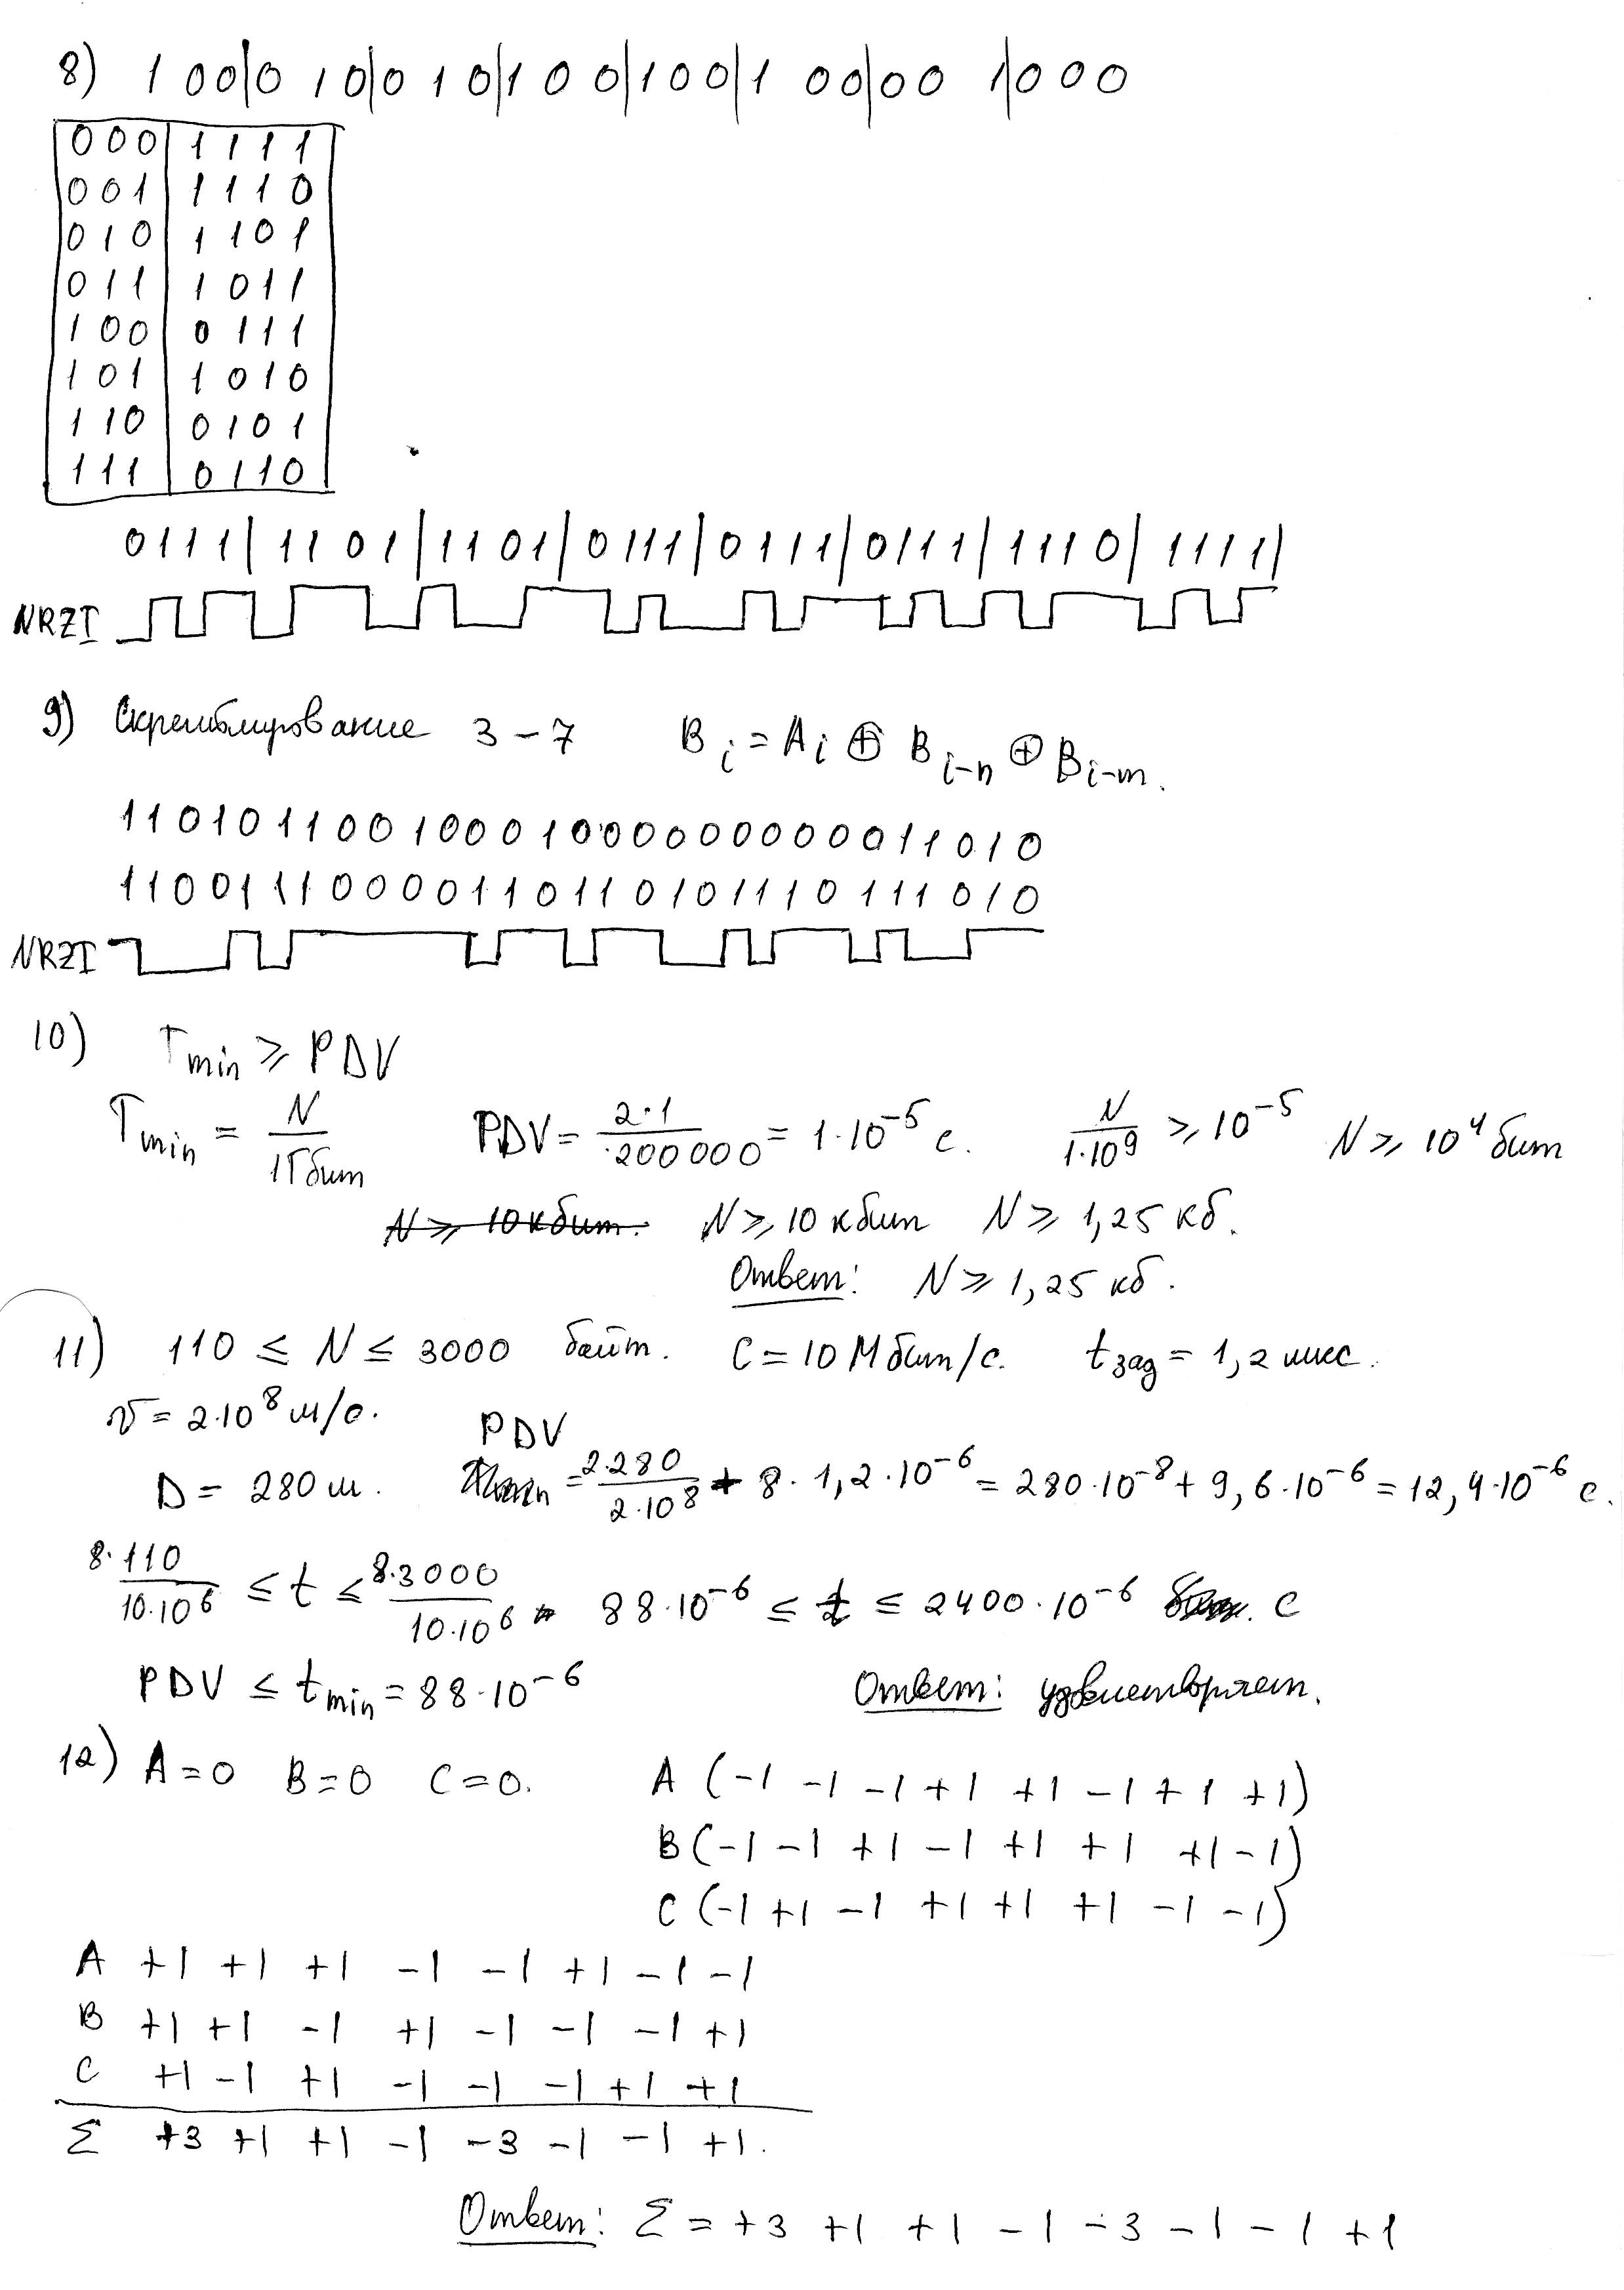 8) 1 00|0 10|0 10|1 00|100|1 00|00 1|000
000|1111
001|1110
010|1101
011|1011
100|0111
101|1010
110|0101
111|0110
0111|1101|1101|0111|0111|0111|1110|1111|
NRZI
9) Скремблирование 3-7 B i = A i ⊕ B i-n ⊕ B i-m.
110101100100010000000000011010
11001110000110110101110111010
NRZI
10) T min ≥ PDV
T min = N / 1Гбит PDV = 2·1 / 200 000 = 1·10^-5 с. N / 1·10^9 ≥ 10^-5 N ≥ 10^4 бит
N ≥ 10 кбит. N ≥ 10 кбит N ≥ 1,25 кб.
Ответ: N ≥ 1,25 кб.
11) 110 ≤ N ≤ 3000 байт. C = 10 Мбит/с. t зад = 1,2 мкс.
v = 2·10^8 м/с.
D = 280 м. PDV = 2·280 / 2·10^8 + 8·1,2·10^-6 = 280·10^-8 + 9,6·10^-6 = 12,4·10^-6 с.
8·110 / 10·10^6 ≤ t ≤ 8·3000 / 10·10^6 88·10^-6 ≤ t ≤ 2400·10^-6 с
PDV ≤ t min = 88·10^-6 Ответ: удовлетворяет.
12) A=0 B=0 C=0. A (-1 -1 -1 +1 +1 -1 +1 +1)
B (-1 -1 +1 -1 +1 +1 +1 -1)
C (-1 +1 -1 +1 +1 +1 -1 -1)
A +1 +1 +1 -1 -1 +1 -1 -1
B +1 +1 -1 +1 -1 -1 -1 +1
C +1 -1 +1 -1 -1 -1 +1 +1
Σ +3 +1 +1 -1 -3 -1 -1 +1.
Ответ: Σ = +3 +1 +1 -1 -3 -1 -1 +1